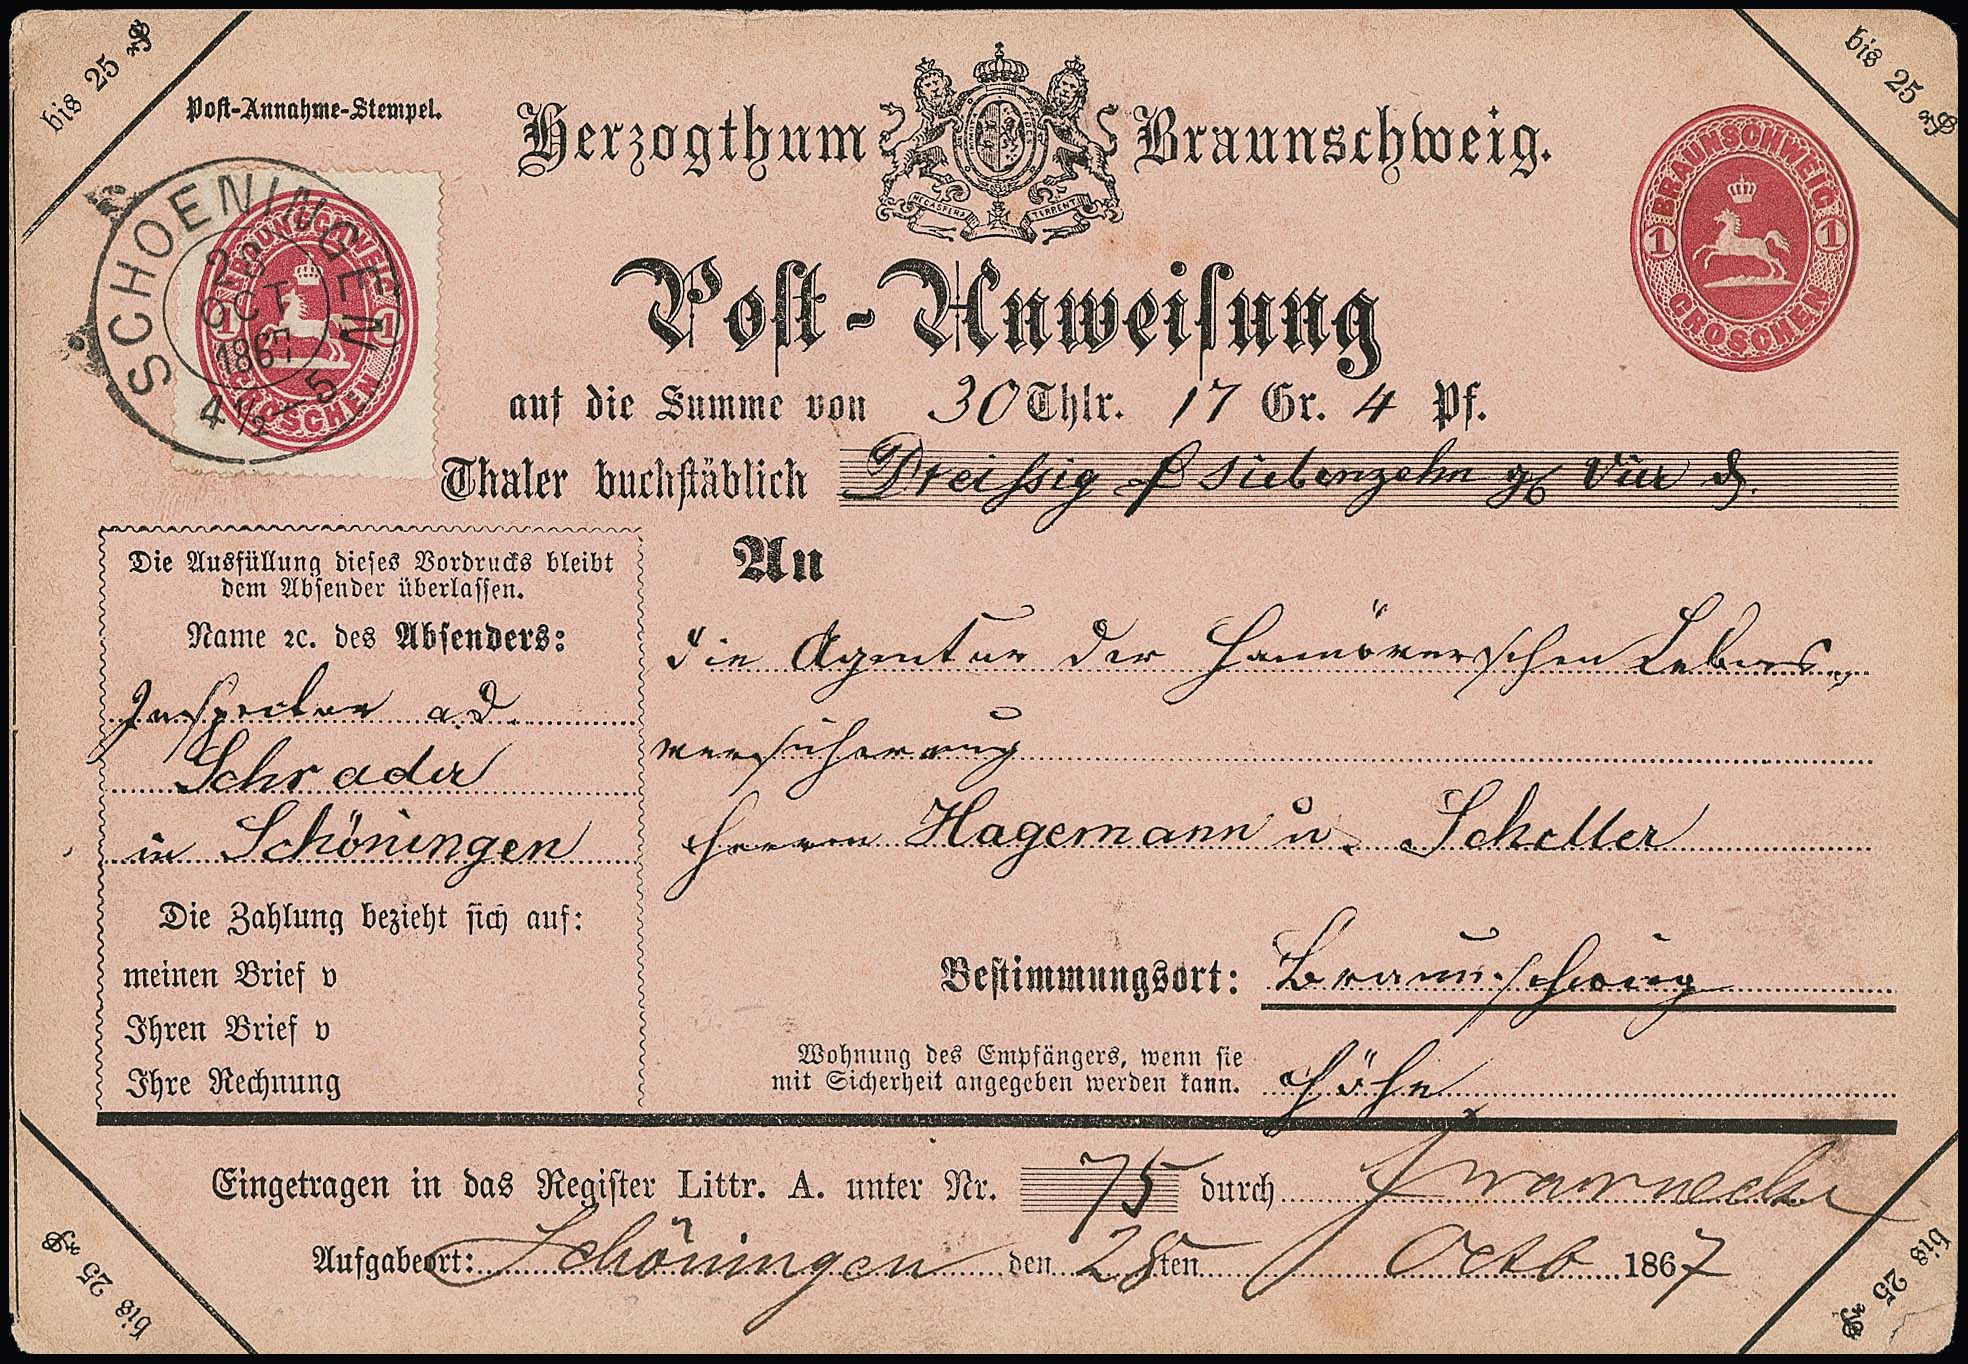 bis 25
bis 25
Post-Annahme-Stempel.
Herzogthum Braunschweig.
NEC ASPERA TERRENT
BRAUNSCHWEIG
1 1
GROSCHEN
SCHOENINGEN
28
OCT
1867
4½-5
BRAUNSCHWEIG
1 1
GROSCHEN
Post-Anweisung
auf die Summe von 30 Thlr. 17 Gr. 4 Pf.
Thaler buchstäblich Dreissig siebenzehn Vier
Die Ausfüllung dieses Vordrucks bleibt
dem Absender überlassen.
Name ꝛc. des Absenders:
Inspector a.D.
Schrader
in Schöningen
Die Zahlung bezieht sich auf:
meinen Brief v
Ihren Brief v
Ihre Rechnung
An
die Agentur der Hannöverschen Lebens
versicherung
Herren Hagemann u. Scheller
Bestimmungsort: Braunschweig
Wohnung des Empfängers, wenn sie
mit Sicherheit angegeben werden kann. Höhe
Eingetragen in das Register Littr. A. unter Nr. 75 durch Warnecke
Aufgabeort: Schöningen den 28ten Octb 1867
bis 25
bis 25